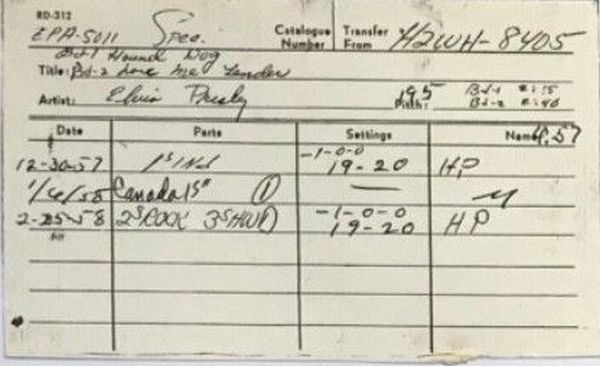 RD-312
EPA-5011 Spec. Catalogue Number Transfer From H2WH-8405
Bd-1 Hound Dog
Title: Bd-2 Love Me Tender
Artist: Elvis Presly 195 Pitch: Bd-1 2:15
Bd-2 2:40
Date Parts Settings Name
12-30-57 1st Ind -1-0-0 19-20 HP
1/6/58 Canada 1S" 1 —
2-25-58 -1-0-0 19-20 HP